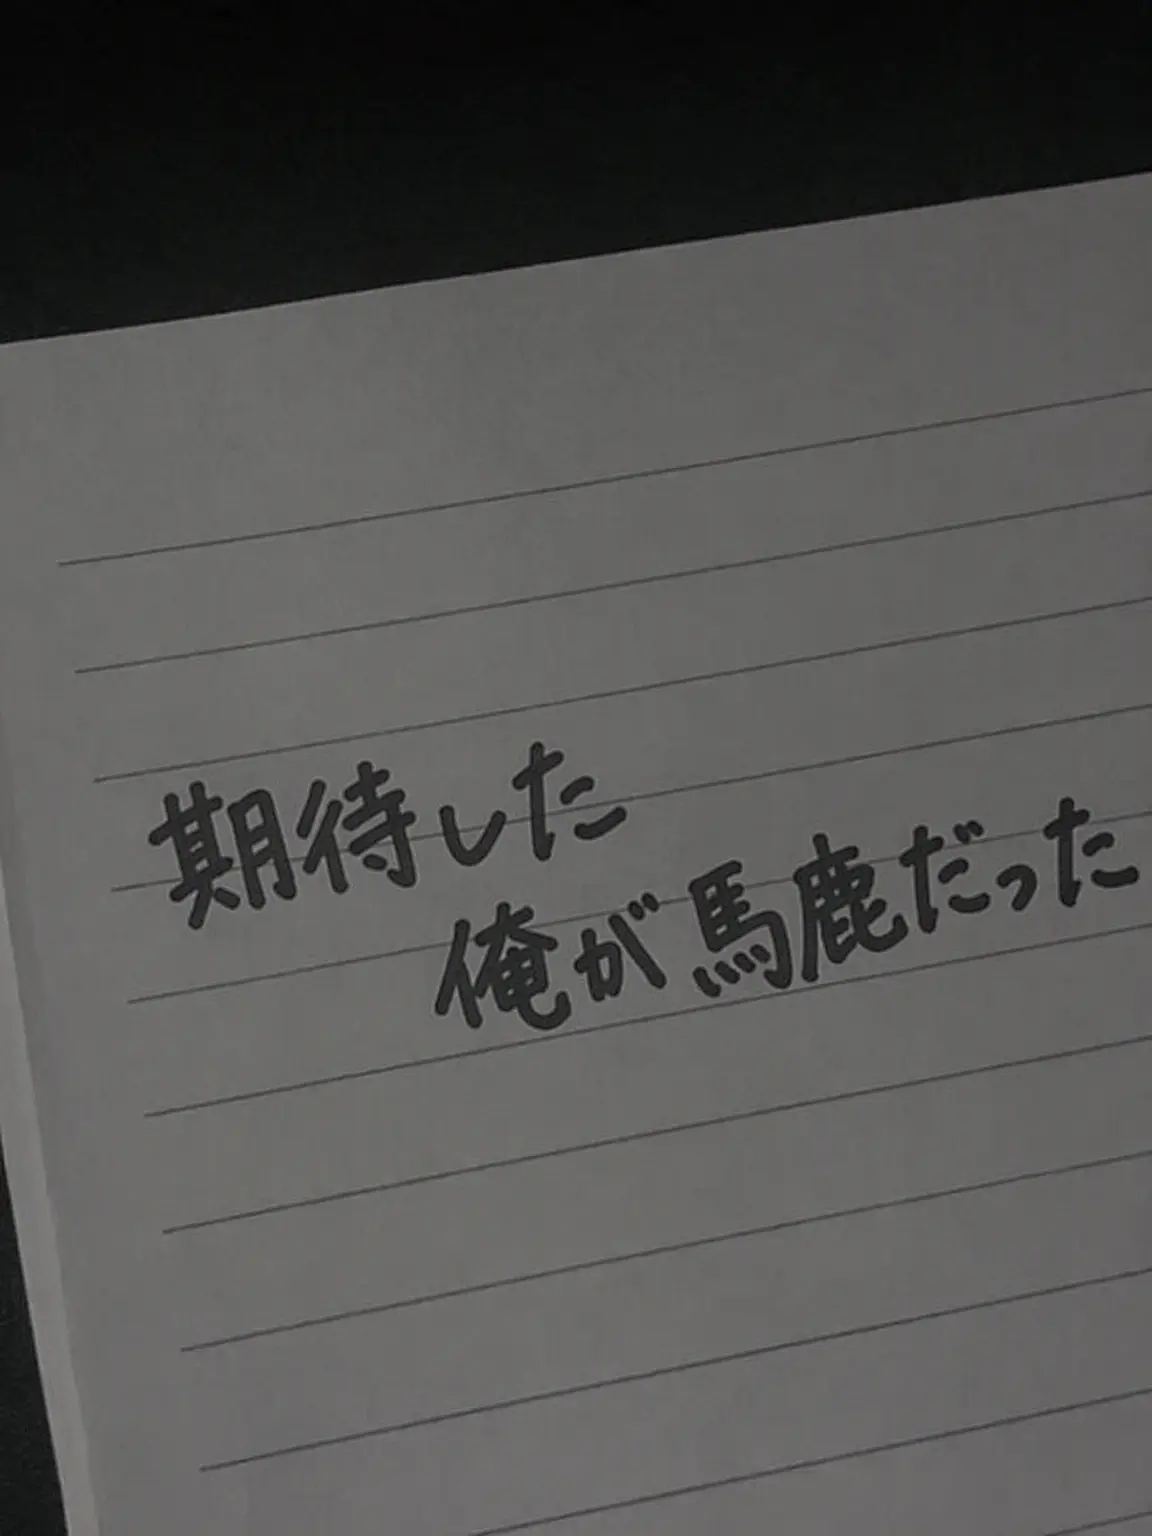 期待した
俺が馬鹿だった